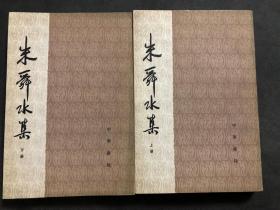 朱舜水集
下册
中华书局
朱舜水集
上册
中华书局